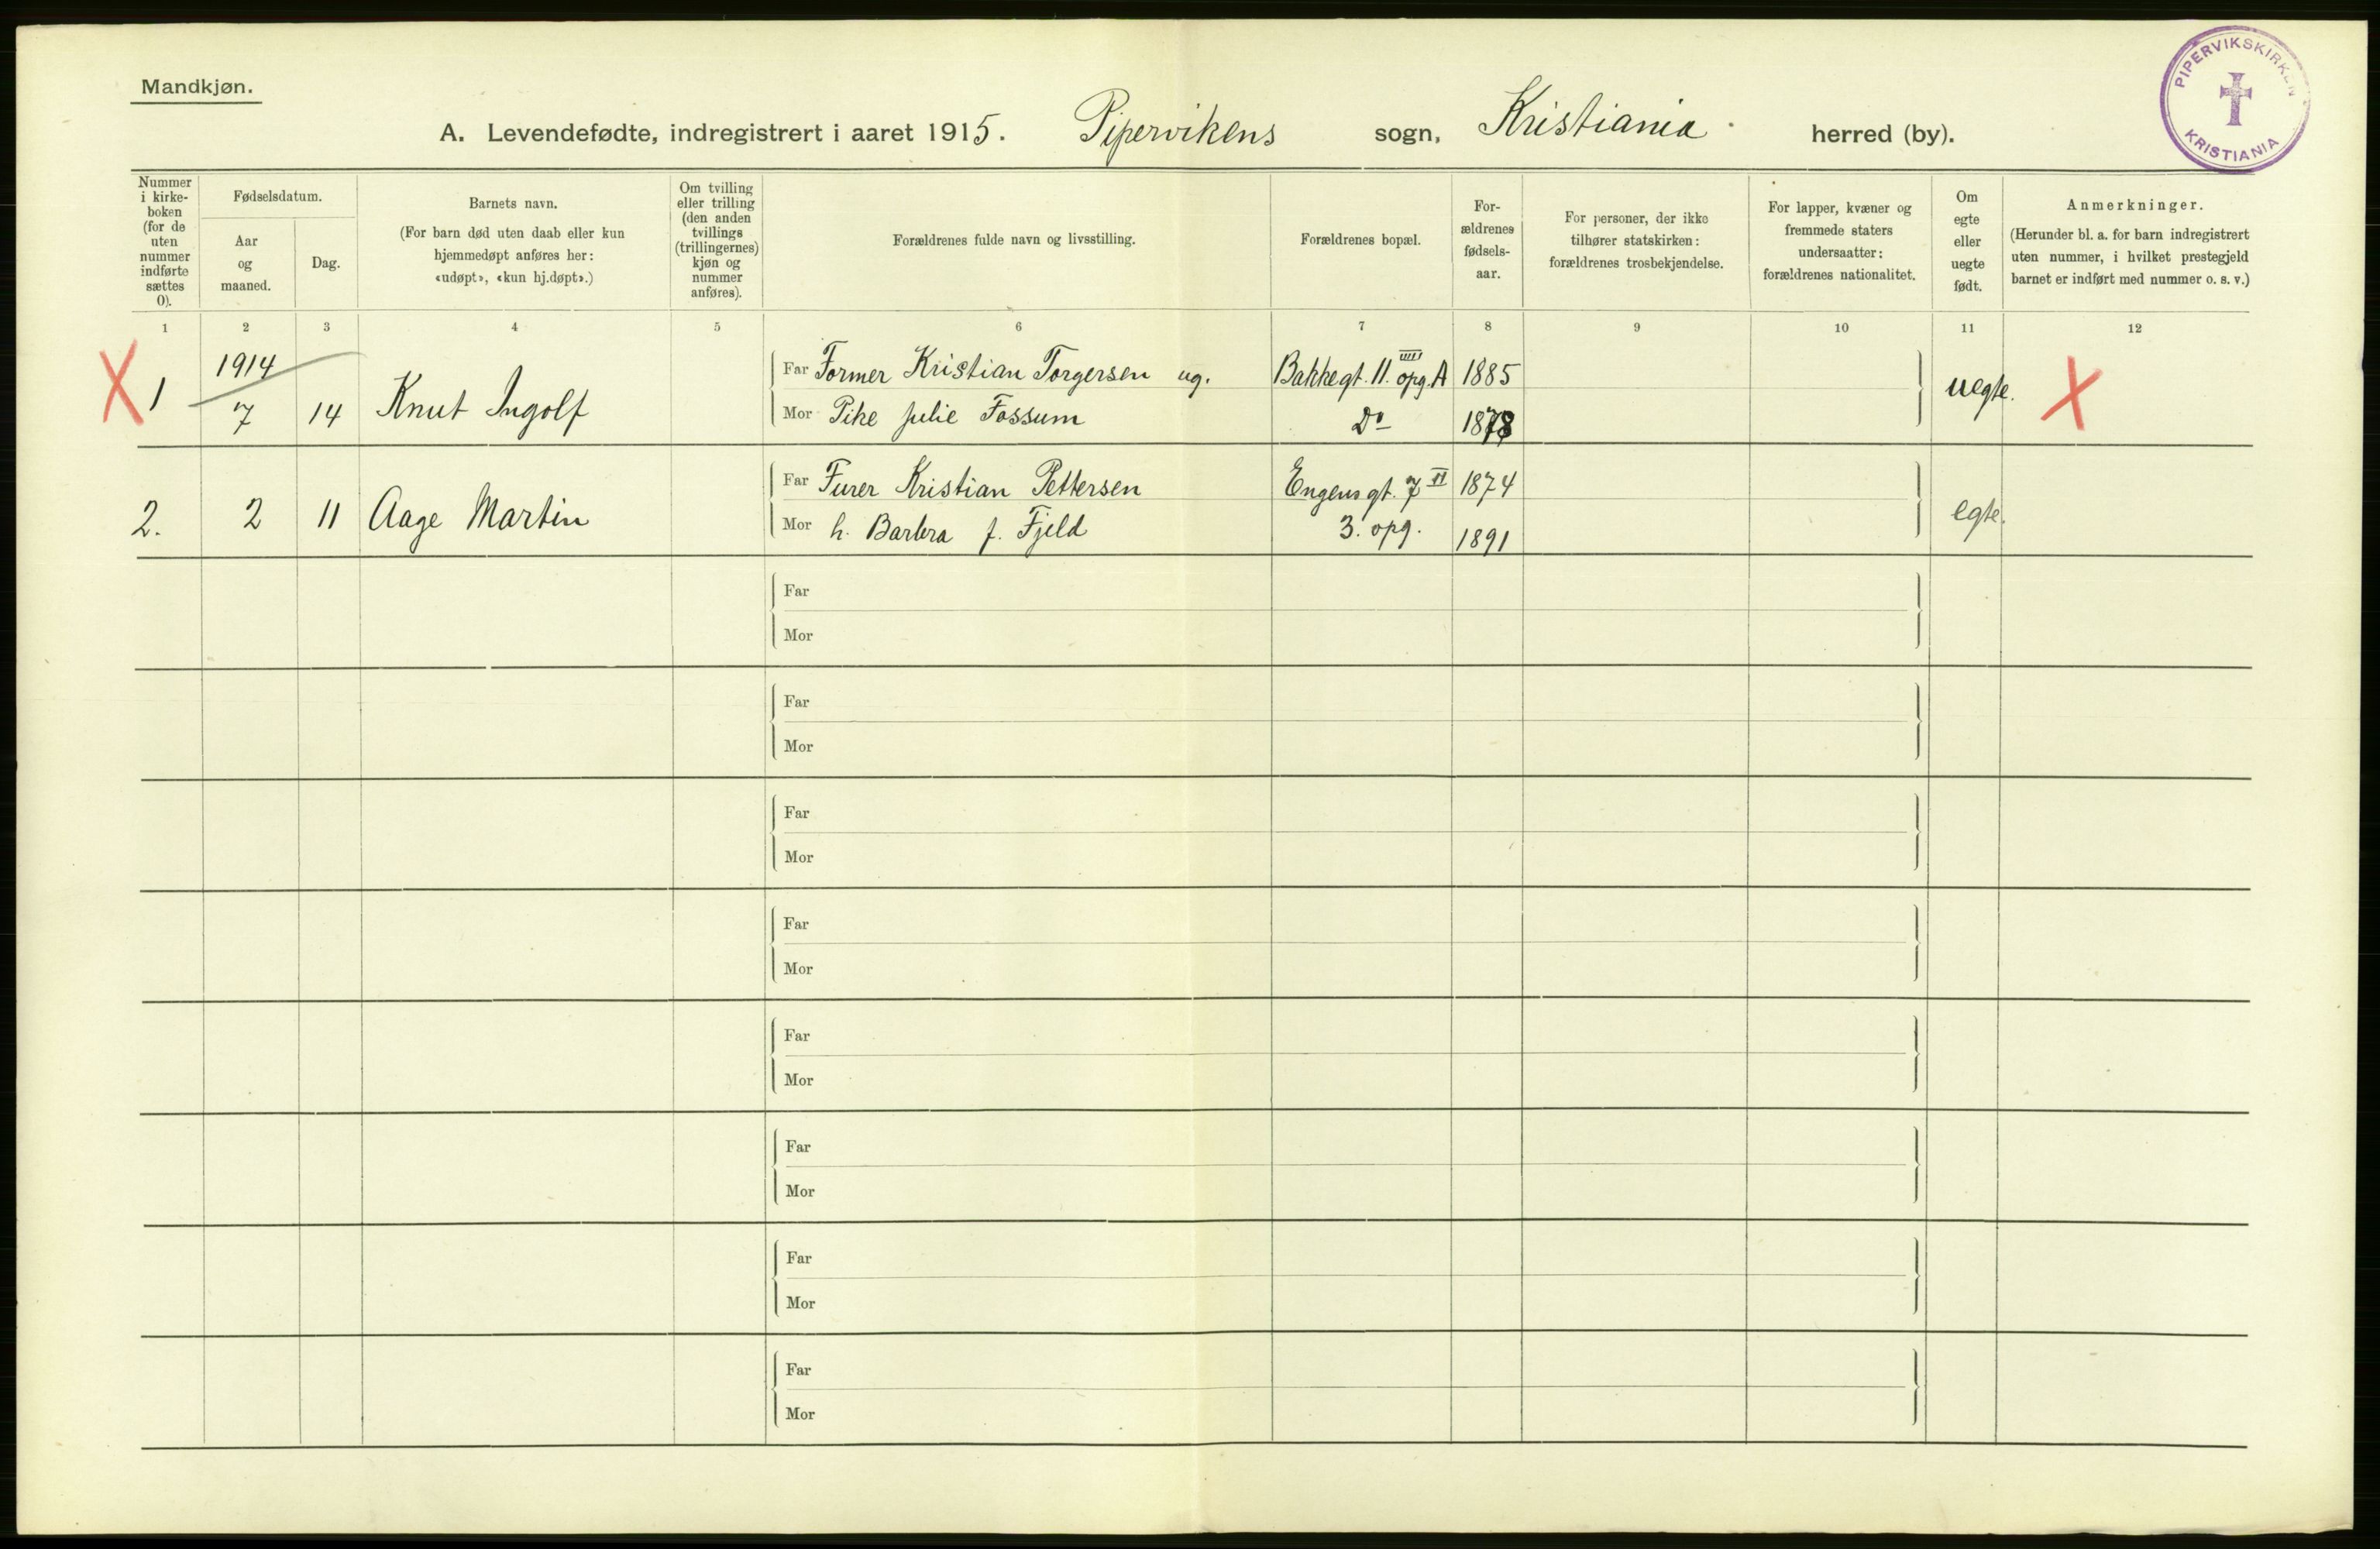 Mandkjøn.
PIPERVIKSKIRKEN
KRISTIANIA
A. Levendefødte, indregistrert i aaret 1915. Pipervikens sogn, Kristiania herred (by).
Nummer
i kirke-
boken
(for de
uten
nummer
indførte
sættes
0).
Fødselsdatum.
Aar
og
maaned.
Dag.
Barnets navn.
(For barn død uten daab eller kun
hjemmedøpt anføres her:
«udøpt», «kun hj.døpt».)
Om tvilling
eller trilling
(den anden
tvillings
(trillingernes)
kjøn og
nummer
anføres).
Forældrenes fulde navn og livsstilling.
Forældrenes bopæl.
For-
ældrenes
fødsels-
aar.
For personer, der ikke
tilhører statskirken:
forældrenes trosbekjendelse.
For lapper, kvæner og
fremmede staters
undersaatter:
forældrenes nationalitet.
Om
egte
eller
uegte
født.
Anmerkninger.
(Herunder bl. a. for barn indregistrert
uten nummer, i hvilket prestegjeld
barnet er indført med nummer o. s. v.)
1 2 3 4 5 6 7 8 9 10 11 12
1914
X 1 7 14 Knut Ingolf
Far Former Kristian Torgersen ug. Bakkegt. 11. IIII opg. A 1885
Mor Pike Julie Fossum Do 1878
uegte. X
2. 2 11 Aage Martin
Far Furer Kristian Pettersen Engens gt. 7 II 1874
Mor h. Barbra f. Fjeld 3. opg. 1891
egte.
Far
Mor
Far
Mor
Far
Mor
Far
Mor
Far
Mor
Far
Mor
Far
Mor
Far
Mor